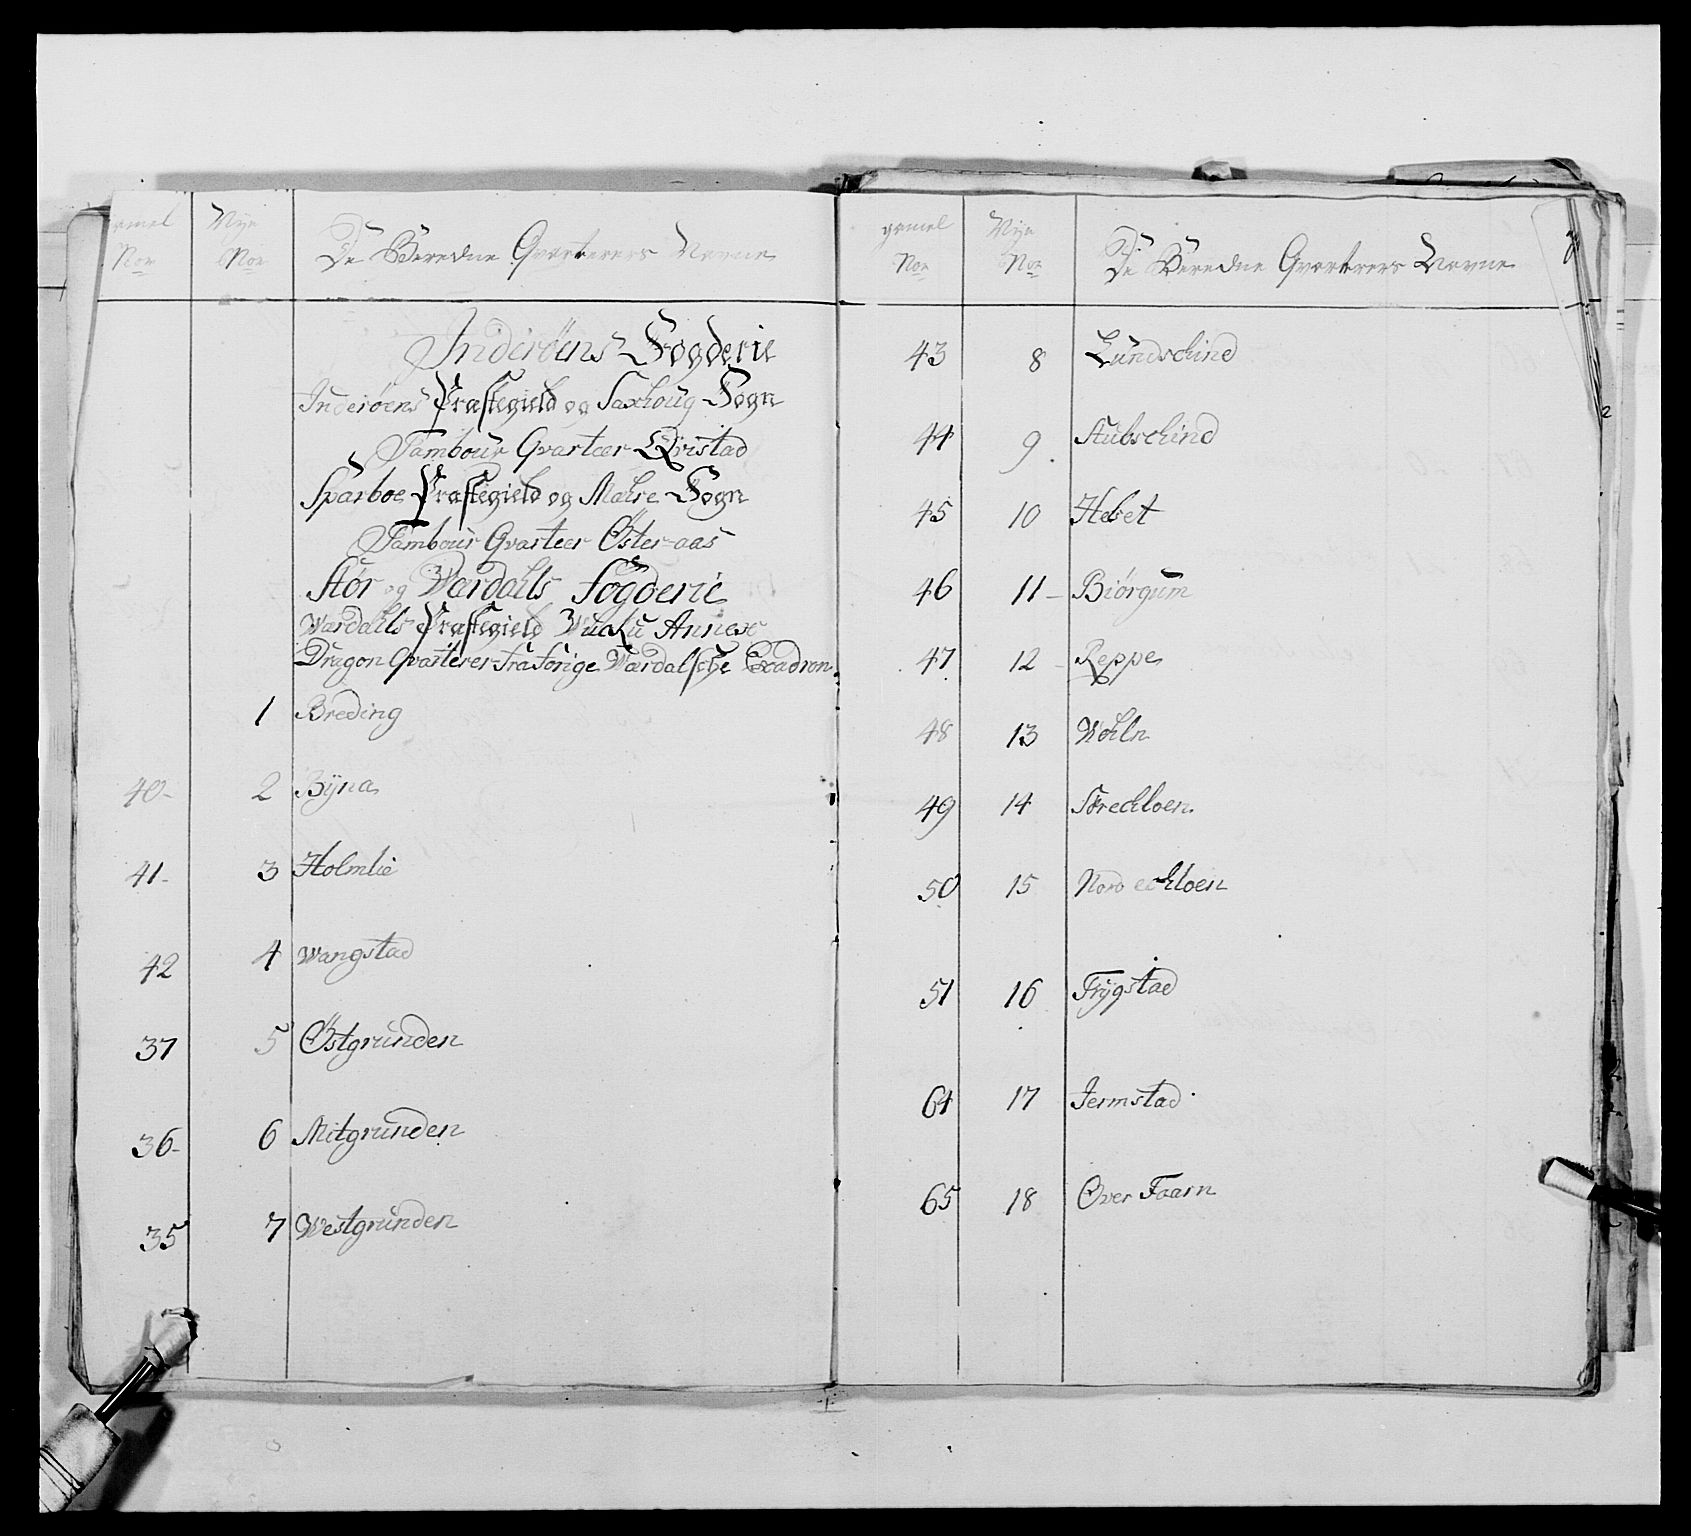 gamel Nye De Beredne Qvarterers Navne
Nor Nor
Inderøens Fogderie
Inderøens Præstegield og Saxhoug Sogn
Tambour Qvarteer Qvistad
Sparboe Præstegield og Mahre Sogn
Tambour Qvarteer Öster-aas
Stør og Wærdahls Fogderie
Wærdahls Præstegield Wuku Annex
Dragon Qvarterer fra forige Wærdalsche Esqadron
1 Breding
40- 2 Byna
41- 3 Holmlie
42 4 Wangstad
37 5 Östgrunden
36- 6 Mitgrunden
35 7 Westgrunden
gamel Nye De Beredne Qvarterers Navne
Nor Nor
43 8 Lundschind
44 9 Stubschind
45 10 Helset
46 11- Biörgum
47 12- Reppe
48 13
49 14
50 15
51 16 Trygstad
64 17 Jermstad
65 18 Over Faarn